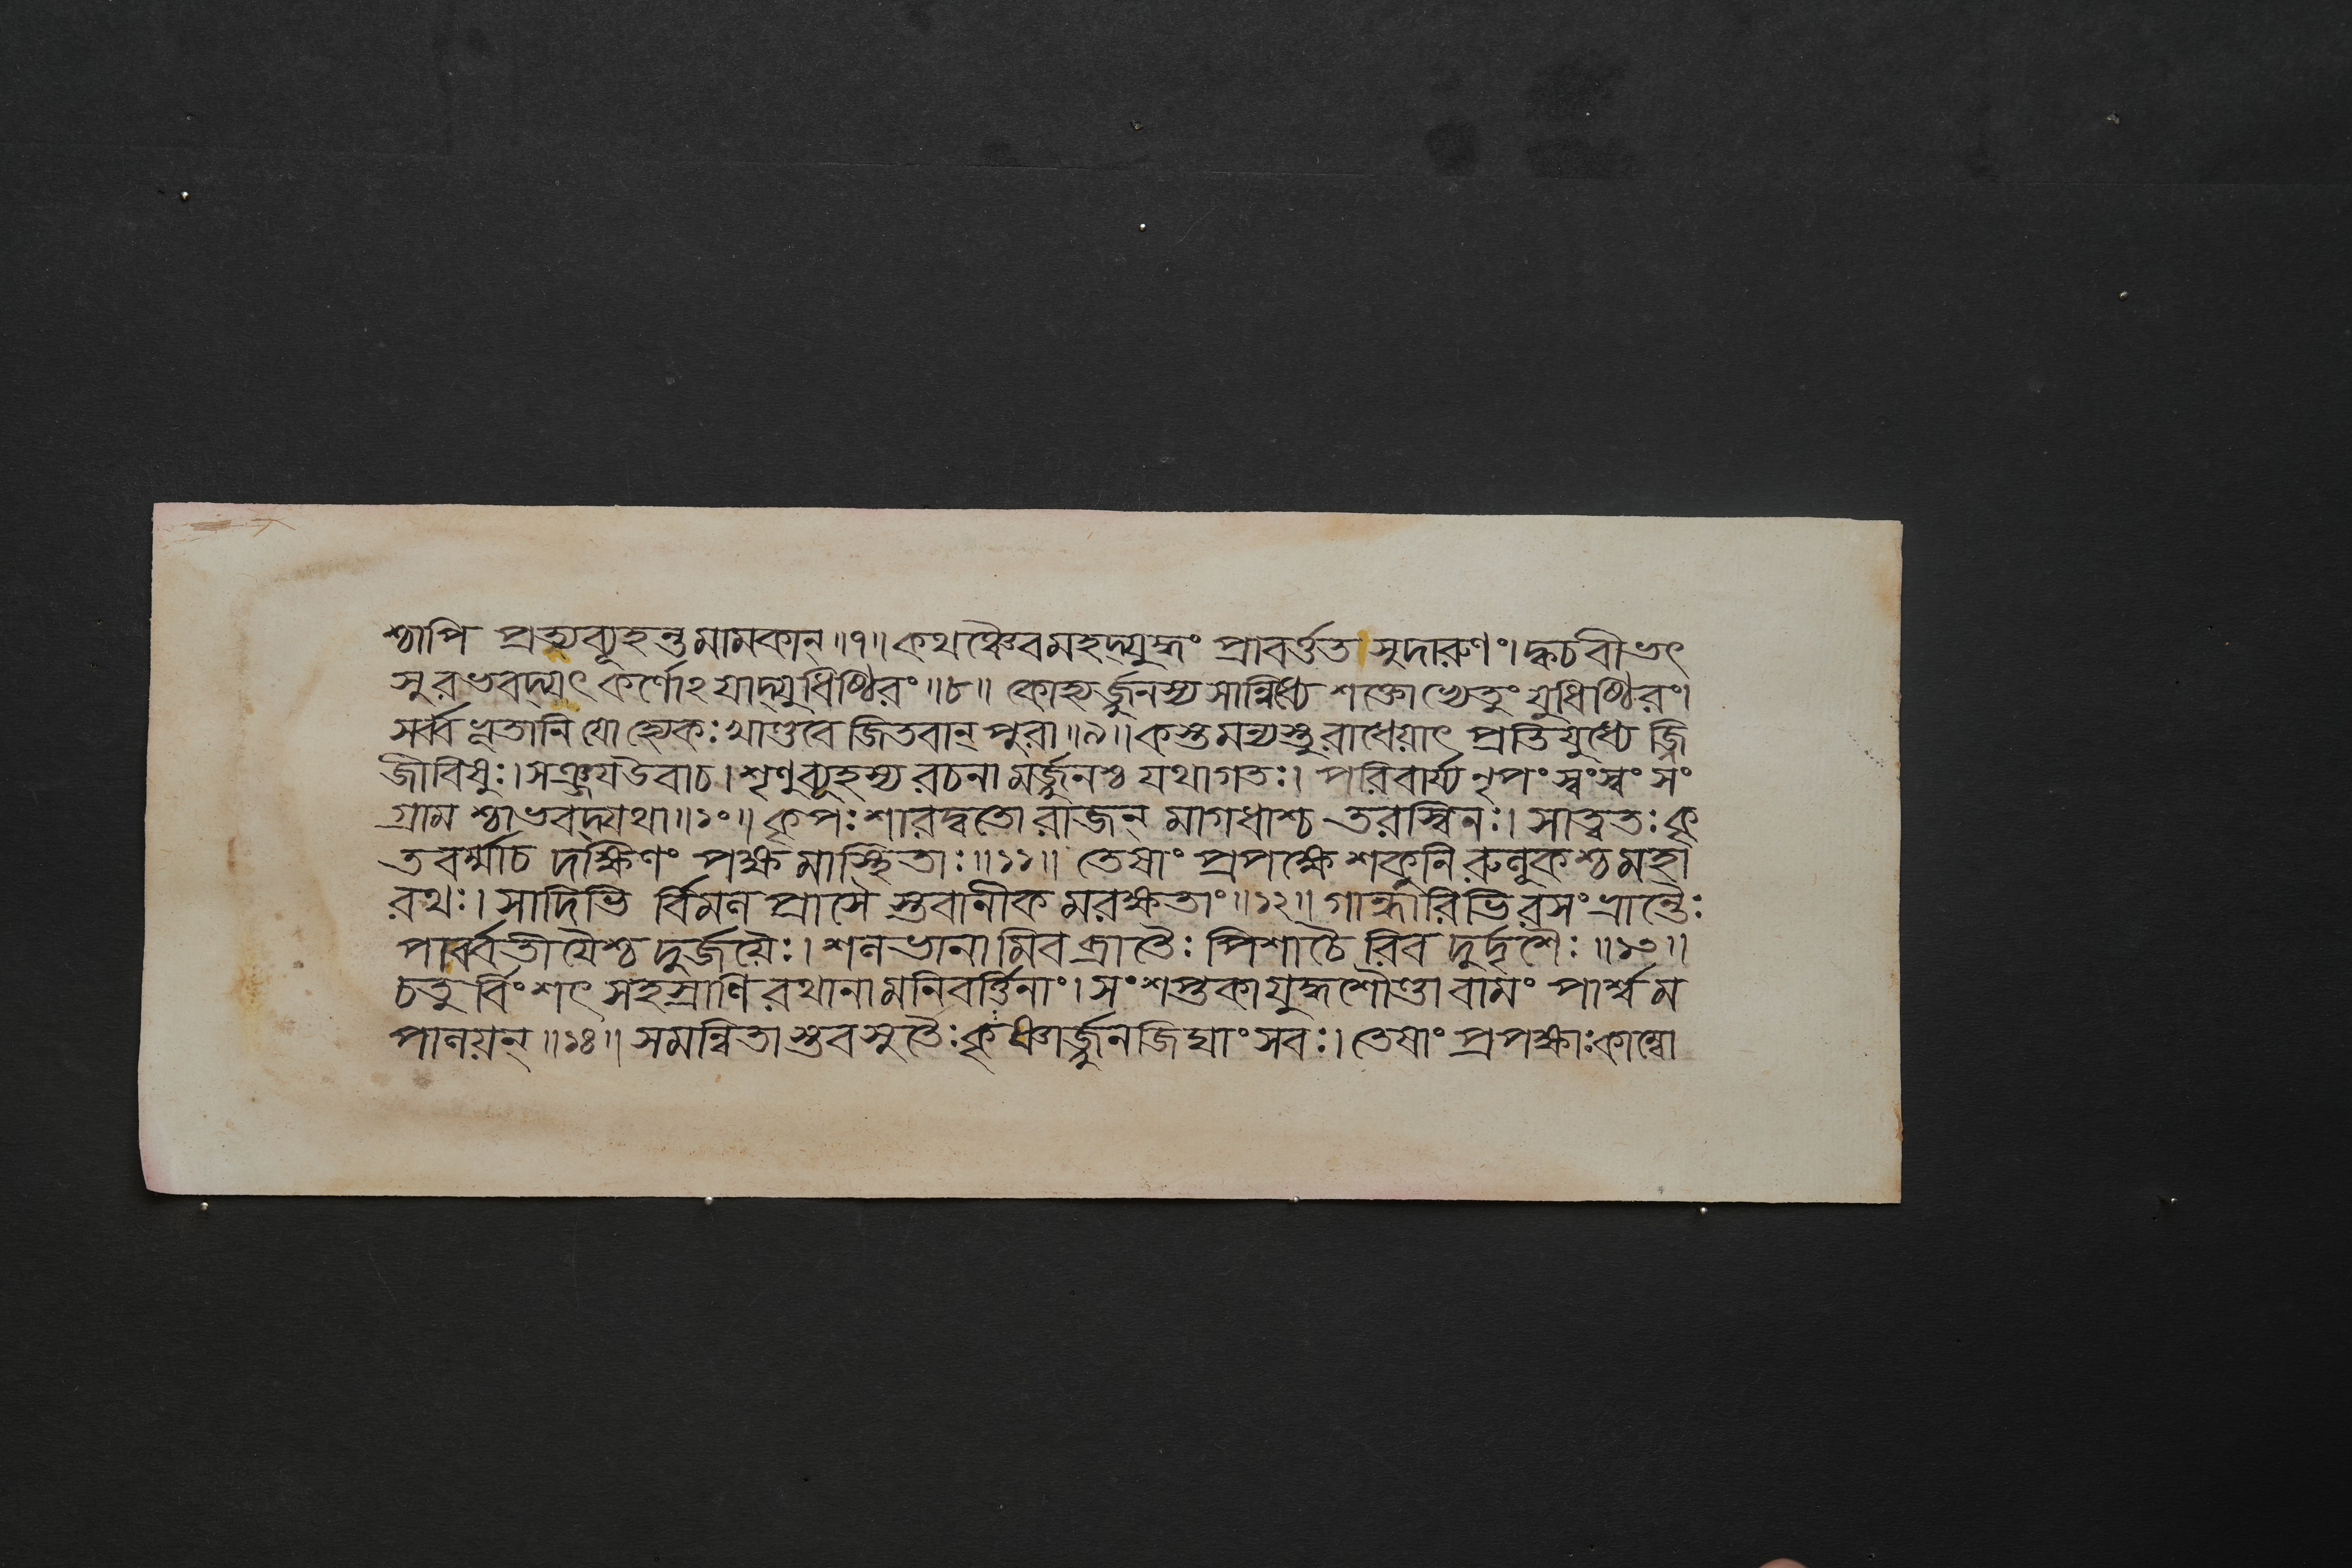 শ্চাপি প্রত্যব্যূহন্তমামকান্॥৭॥কথঞ্চৈবমহদ্যুদ্ধং প্রাবর্ত্তত সুদারুণং। ক্বচবীভৎ
সুরভবদ্যৎ কর্ণোঽয়াদ্যুধিষ্ঠিরং॥৮॥ কোহ্যর্জ্জুনস্য সান্নিধ্যে শক্তোভ্যেতুং যুধিষ্ঠিরং।
সর্ব্বভূতানি যো হ্যেকঃ খাণ্ডবে জিতবান্ পুরা॥৯॥কস্তমন্যস্তু রাধেয়াৎ প্রতিযুধ্যে জ্জি
জীবিষুঃ। সঞ্জয়উবাচ। শৃণুব্যূহস্য রচনা মর্জ্জুনশ্চ যথাগতঃ। পরিবার্য্য নৃপং স্বংস্বং সং
গ্রাম শ্চাভবদ্যথা॥১০॥ কৃপঃ শারদ্বতো রাজন্ মাগধাশ্চ তরস্বিনঃ। সাত্বতঃ কৃ
তবর্ম্মাচ দক্ষিণং পক্ষমাস্থিতাঃ॥১১॥ তেষাং প্রপক্ষে শকুনি রুলূকশ্চ মহা
রথঃ। সাদিভি র্বিমল প্রাসৈ স্তবানীক মরক্ষতাং॥১২॥ গান্ধারিভিরসংভ্রান্তৈঃ
পার্ব্বতীয়ৈশ্চ দুর্জয়ৈঃ। শলভানামিবব্রাতৈঃ পিশাচৈ রিব দুর্দৃশৈঃ॥১৩॥
চতুর্বিংশৎ সহস্রাণি রথানামনিবর্ত্তিনাং। সংশপ্তকা যুদ্ধশৌণ্ডা বামং পার্শ্বম
পালয়ন্॥১৪॥ সমন্বিতাস্তব সুতৈঃ কৃষ্ণার্জ্জুনজিঘাংসবঃ। তেষাং প্রপক্ষাঃ কাম্বো